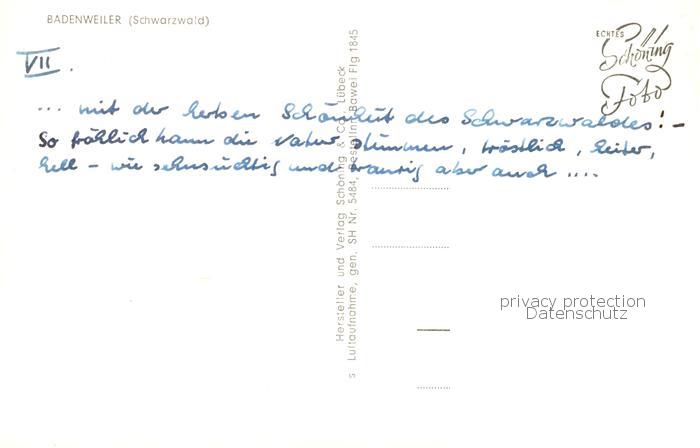 BADENWEILER (Schwarzwald)
ECHTES
Schöning
Foto
VII.
... mit der herben Schönheit des Schwarzwaldes! –
So fröhlich kann die Natur stimmen, tröstlich, heiter,
hell – wie sehnsüchtig und traurig aber auch ....
Hersteller und Verlag Schöning & Co., Lübeck
s Luftaufnahme, gen. SH Nr. 5484, Bestellnr. Bawei Flg 1845
privacy protection
Datenschutz